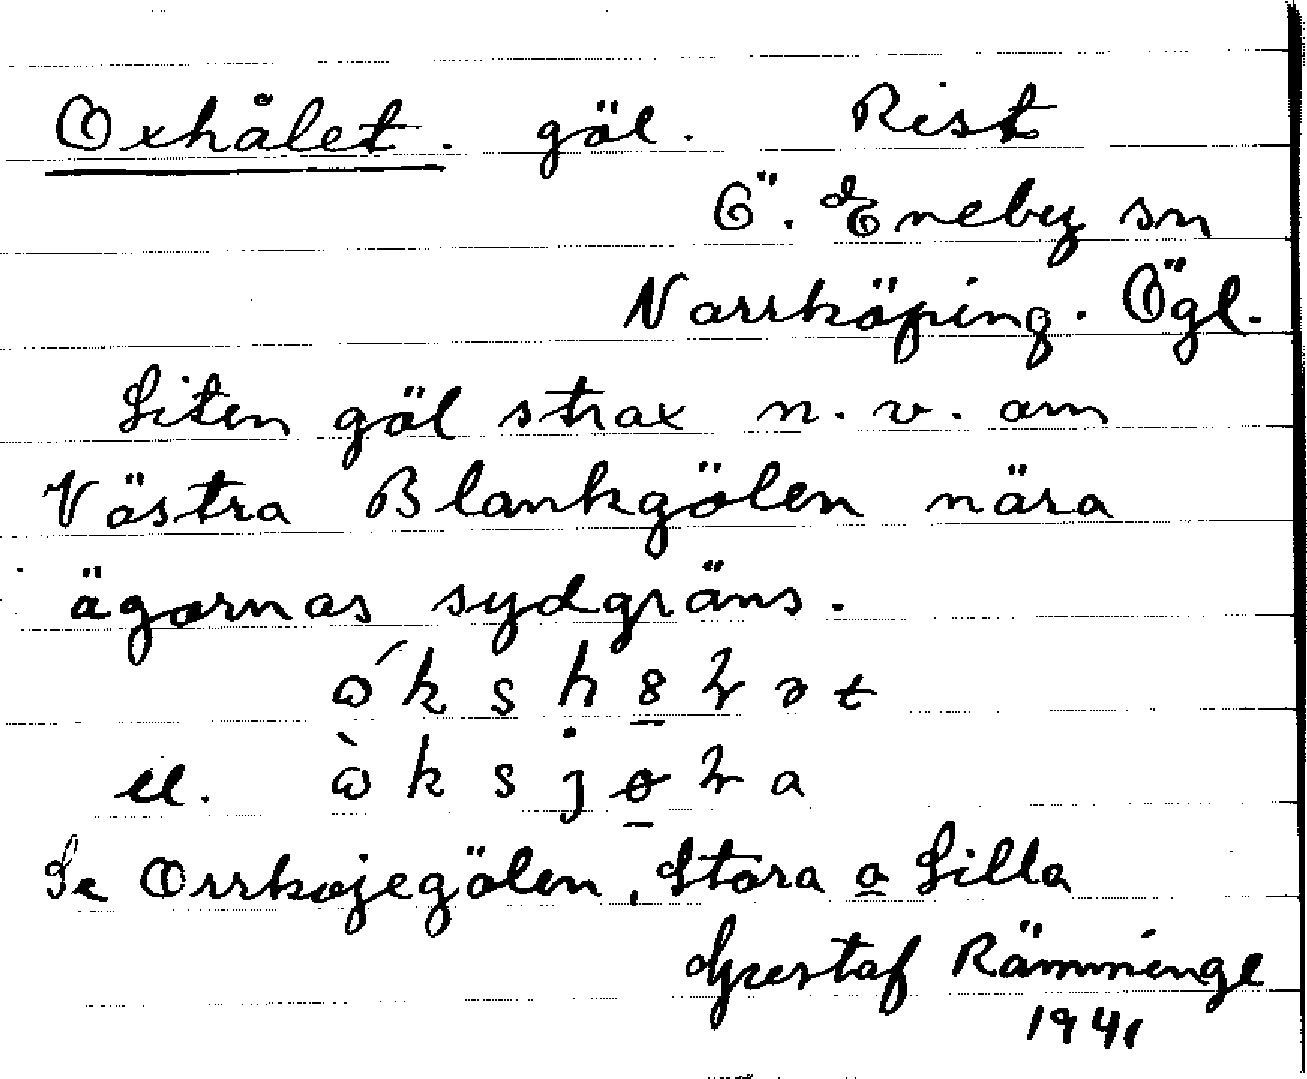 Oxhålet. göl. Rist
Ö. Eneby sn
Norrköping. Ögl.
Liten göl strax n. v. om
Västra Blankgölen nära
ägornas sydgräns.
el.
Se Orrkojegölen, Stora o Lilla
Gustaf Rämminge
1941